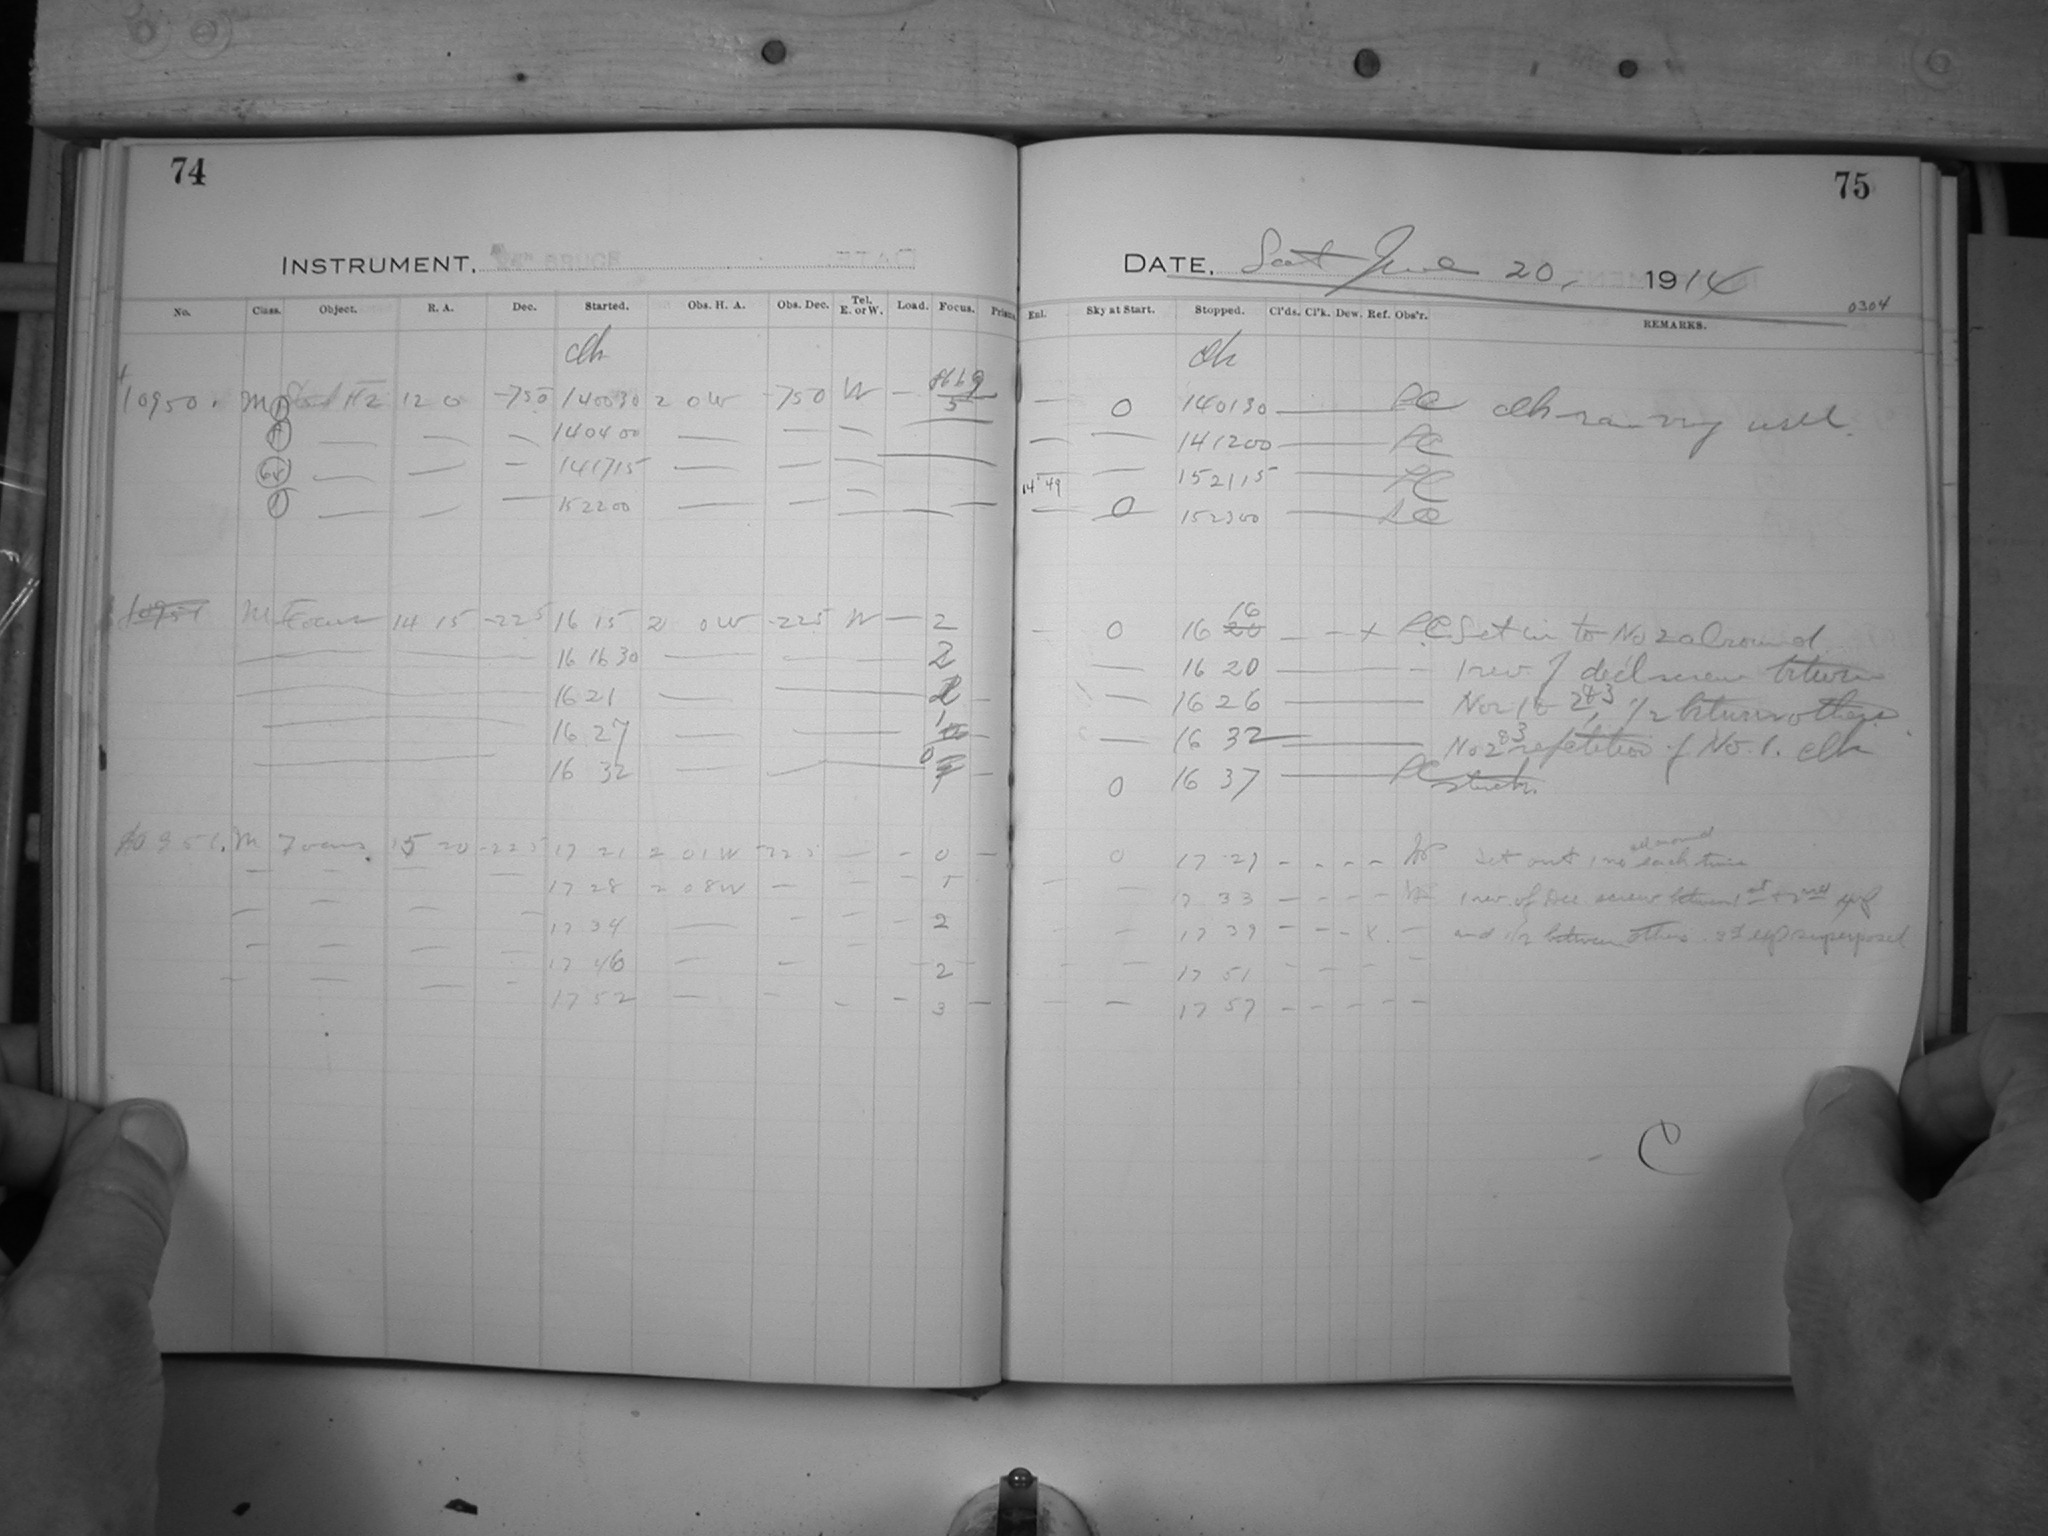 74
INSTRUMENT.
No. Class. Object. R. A. Dec. Started. Obs. H. A. Obs. Dec. Tel. E. or W. Load. Focus. Prisms.
clk
10950. M 12 0 -750 140030 2 0W -750 W — 5
1 — — — 140400 — — — —
64 — — — 141715 — — — —
1 — — — 152200 — — — —
10951 M Focus 14 15 -225 16 15 2 0W -225 W — 2
— — 16 16 30 — — — 2
— — 16 21 — —
— — 16 27 — — 1
— 16 32 — — 0
10951. M Focus 15 20 -225 17 21 2 01W -225 — - 0 -
— — — — 17 28 2 08W — — - 1
— — — - 17 34 — - — - 2
— — — — 17 46 — - — - 2
— — — - 17 52 — - - - 3 —
75
DATE. Sat June 20, 1914
0304
Enl. Sky at Start. Stopped. Cl'ds. Cl'k. Dew. Ref. Obs'r. REMARKS.
clk
— 0 140130 — PC clk running well.
— — 141200 — PC
14 49 — 152115 — PC
— 0 152300 — PC
— 0 16 16 — - x PC Set in to No 2 all round
— 16 20 — 1 rev of decl screw between
— 16 26 — Nos 1 & 2 & 3, 1/2 between others
— 16 32 — No 2 & 3 repetition of No. 1. clk
0 16 37 — PC stuck.
0 17 27 - - - - Set out 1 no all round each time
— — 17 33 - - - - 1 rev. of Dec screw between 1st & 2nd exp
- — 17 39 - - - x. — and 1/2 between others. exp superposed
- — 17 51 - - - -
— — 17 57 - - - - —
C